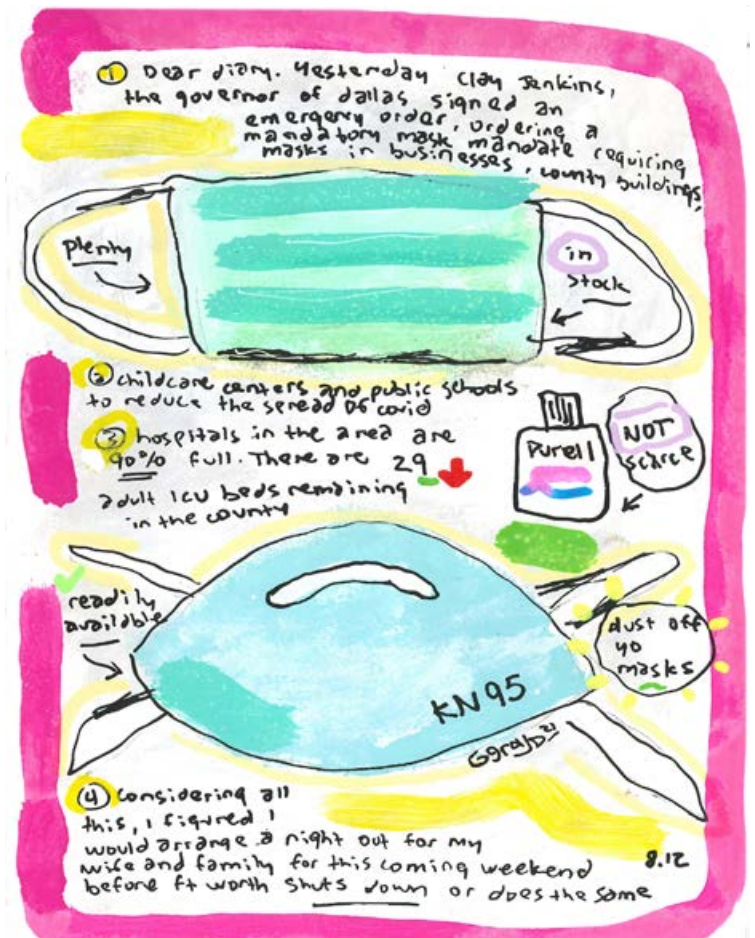 ① Dear diary. Yesterday Clay Jenkins,
the governor of dallas, signed an
emergency order, ordering a
mandatory mask mandate requiring
masks in businesses, county buildings,
plenty
in
stock
② childcare centers and public schools
to reduce the spread of covid
③ hospitals in the area are
90% full. There are 29
adult ICU beds remaining
in the county
Purell
NOT
scarce
readily
available
dust off
yo
masks
KN95
④ considering all
this, I figured I
would arrange a night out for my
wife and family for this coming weekend
before ft worth shuts down or does the same
8.12